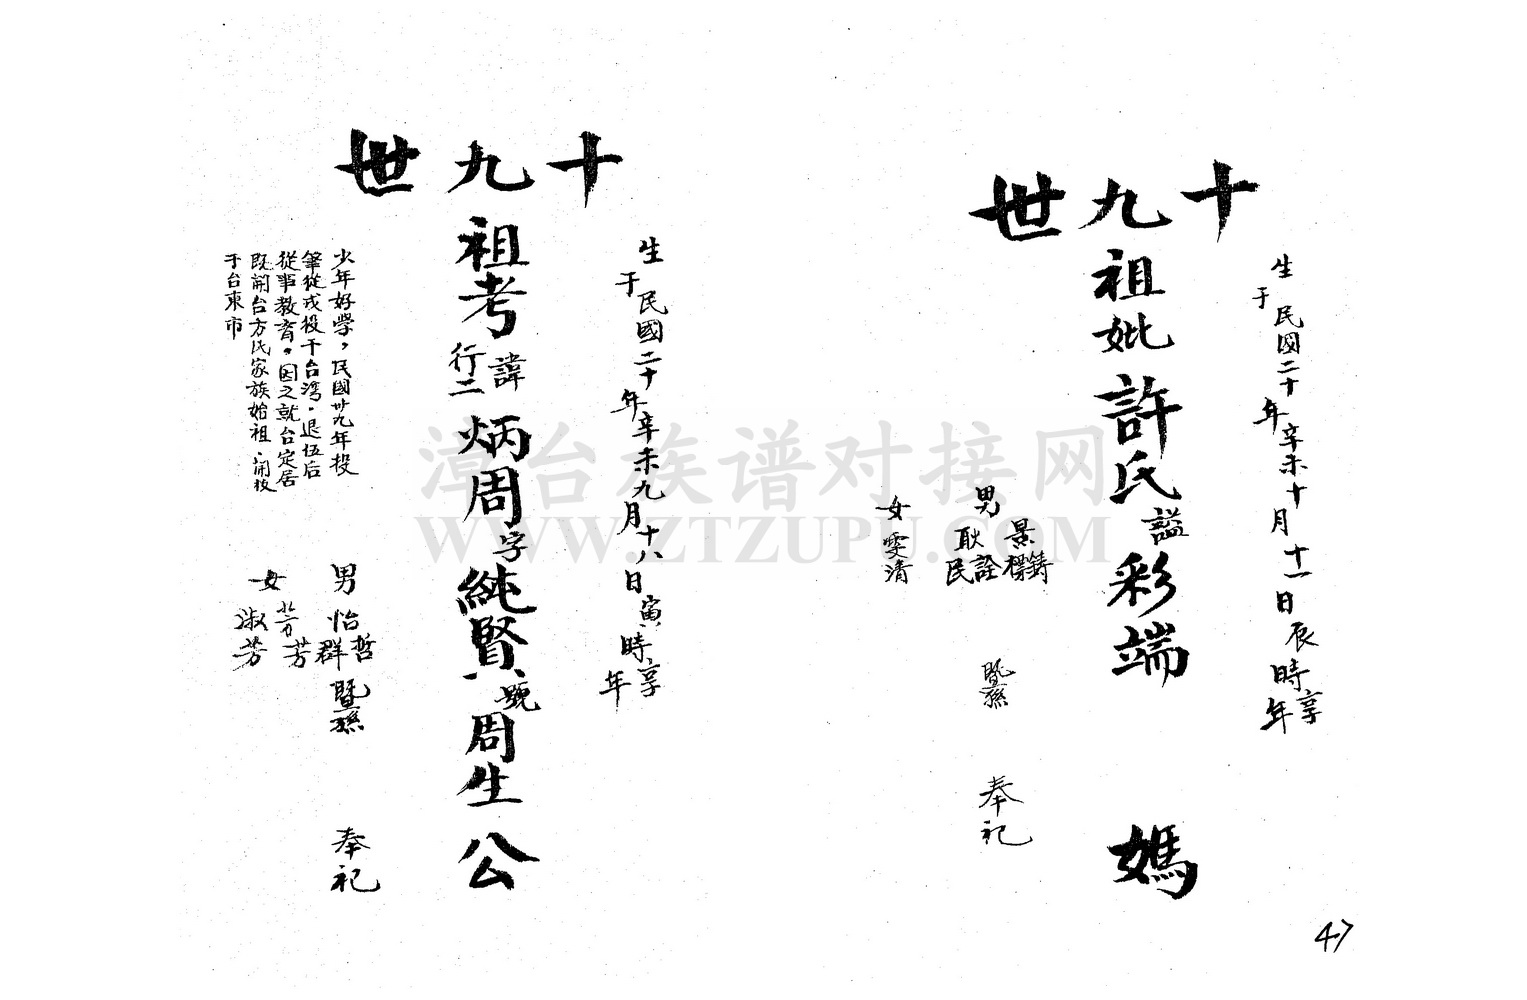 十九世
生于民國二十年辛未十月十一日辰時享年
祖妣許氏諡彩端媽
男景鑄
景標
耿詮
耿民
暨孫
奉祀
女雯清
47
十九世
生于民國二十年辛未九月十八日寅時享年
祖考諱行二炳周字純賢號周生公
男怡哲
群
暨孫
奉祀
女
芳
淑芳
少年好學，民國卅九年投
筆從戎役于台湾，退伍后
從事教育，因之就台定居
既開台方氏家族始祖，開枝
于台東市
漳台族谱对接网
WWW.ZTZUPU.COM